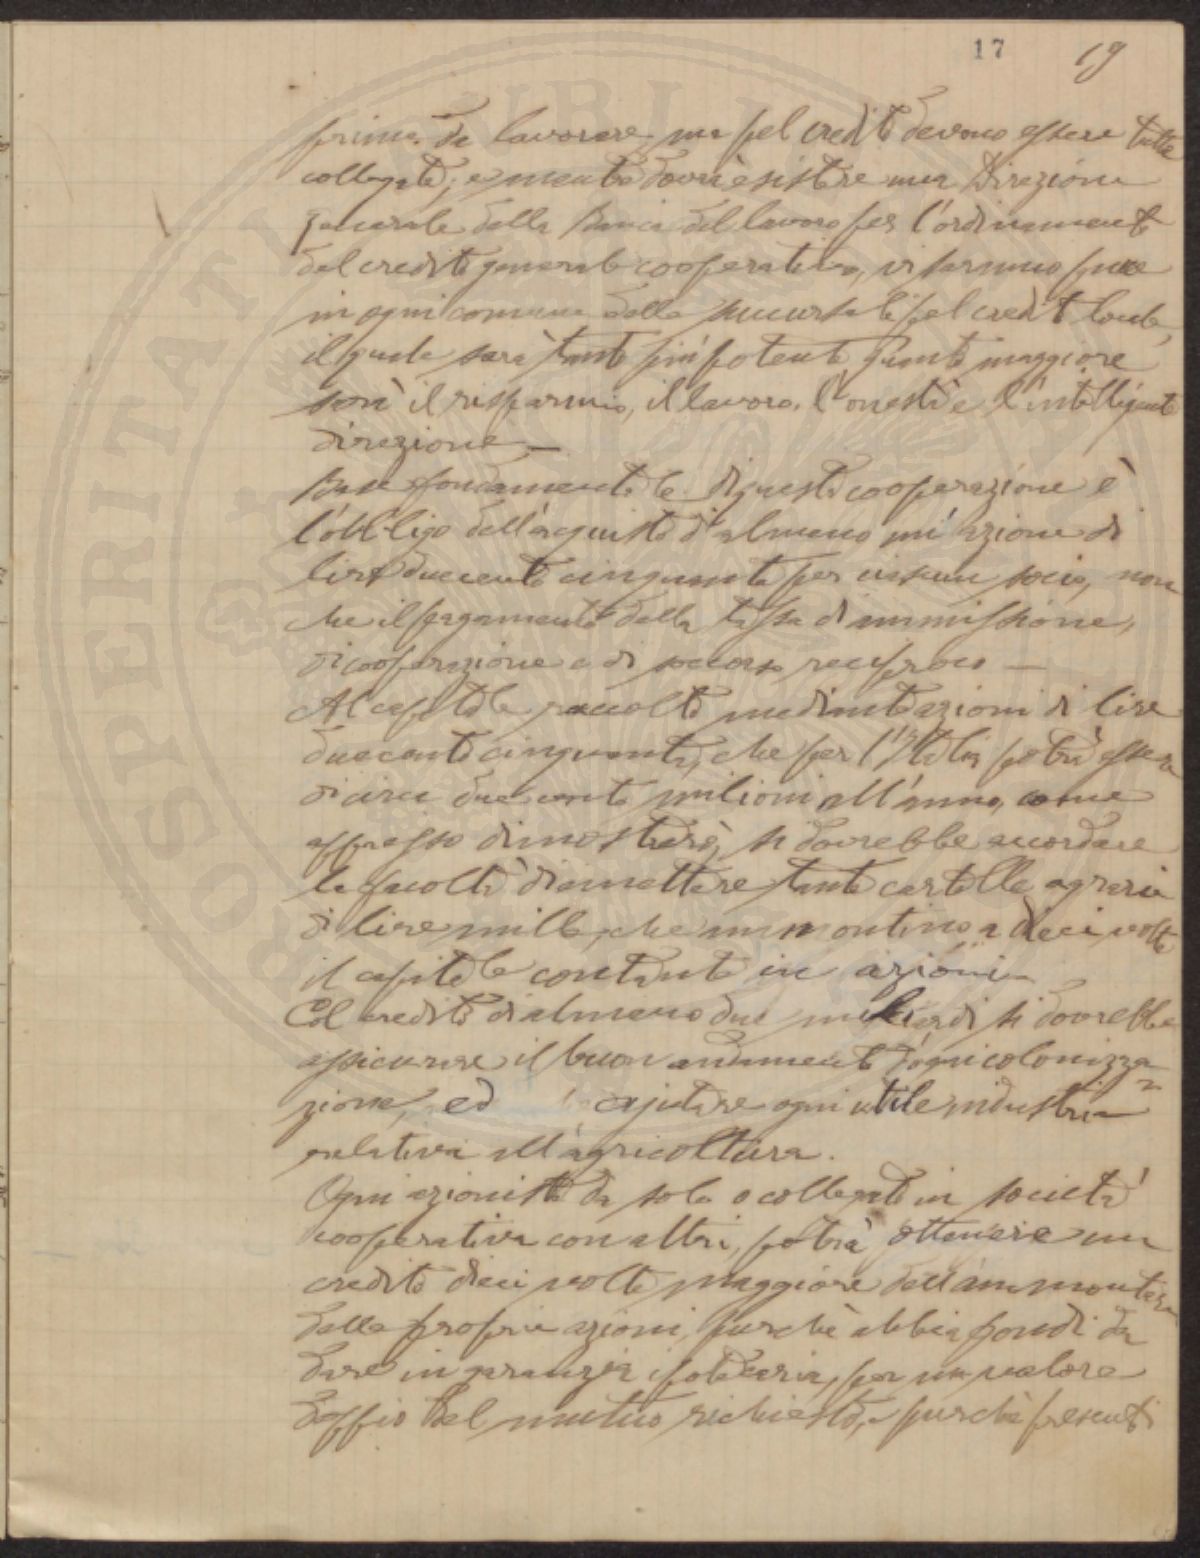 17 19
prime da lavorare, ma pel credito devono essere tutte
collegate; e mentre dovrà esistere una Direzione
generale della Banca del lavoro per l'ordinamento
del credito generale cooperativo, vi saranno pure
in ogni comune delle succursali pel credito locale,
il quale sarà tanto più potente, quanto maggiore
sarà il risparmio, il lavoro, l'onestà e l'intelligente
direzione.—
Base fondamentale di questa cooperazione è
l'obbligo dell'acquisto d'almeno un'azione di
lire duecento cinquanta per ciascun socio, non
che il pagamento della tassa di ammissione,
di cooperazione e di soccorso reciproco —
Al capitale raccolto mediante azioni di lire
duecento cinquanta, che per l'Italia potrà essere
di circa duecento milioni all'anno, come
appresso dimostrerò, si dovrebbe accordare
la facoltà di emettere tante cartelle agrarie
di lire mille, che ammontino a dieci volte
il capitale contante in azioni.
Col credito di almeno due miliardi si dovrebbe
assicurare il buon andamento d'ogni colonizza-
zione, ed ajutare ogni utile industria
relativa all'agricoltura.
Ogni azionista da solo o collegato in società
cooperativa con altri, potrà ottenere un
credito dieci volte maggiore dell'ammontare
delle proprie azioni, purchè abbia fondi da
dare in garanzia ipotecaria, per un valore
doppio del mutuo richiesto, e purchè presenti
PROSPERITATI PUBLICAE